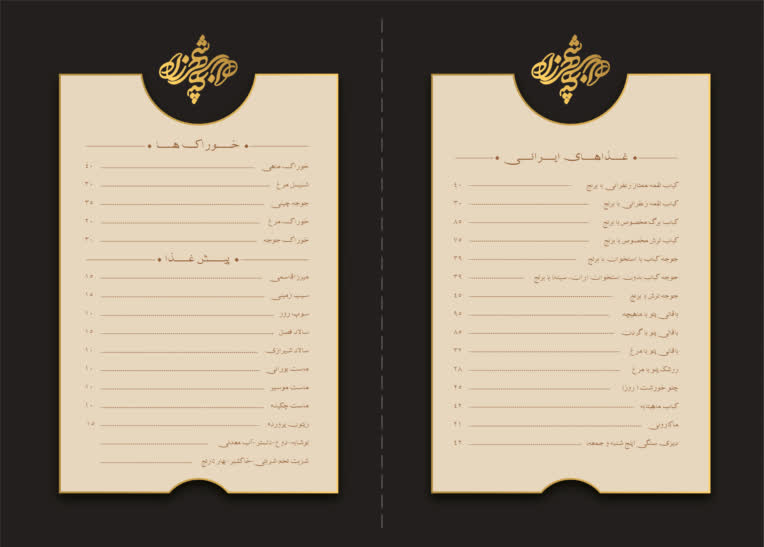 شهرزاد
غذاهای ایرانی
کباب لقمه ممتاز زعفرانی با برنج ۴۰
کباب لقمه زعفرانی با برنج ۳۰
کباب برگ مخصوص با برنج ۸۵
کباب ترش مخصوص با برنج ۷۵
جوجه کباب با استخوان با برنج ۳۹
جوجه کباب بدون استخوان (ران، سینه) با برنج ۳۹
جوجه ترش با برنج ۴۵
باقالی پلو با ماهیچه ۹۵
باقالی پلو با گردن ۸۵
باقالی پلو با مرغ ۳۲
زرشک پلو با مرغ ۲۸
چلو خورشت (روز) ۲۵
کباب ماهیتابه ۴۲
ماکارونی ۲۱
دیزی سنگی (پنج شنبه و جمعه) ۴۲
شهرزاد
خوراک ها
خوراک ماهی ۴۰
شنیسل مرغ ۳۰
جوجه چینی ۳۵
خوراک مرغ ۲۰
خوراک جوجه ۳۰
پیش غذا
میرزاقاسمی ۱۵
سیب زمینی ۱۵
سوپ روز ۱۰
سالاد فصل ۱۵
سالاد شیرازی ۱۰
ماست بورانی ۱۰
ماست موسیر ۱۰
ماست چکیده ۱۰
زیتون پرورده ۱۵
نوشابه-دوغ-دلستر-آب معدنی
شربت تخم شربتی-خاکشیر-بهار نارنج